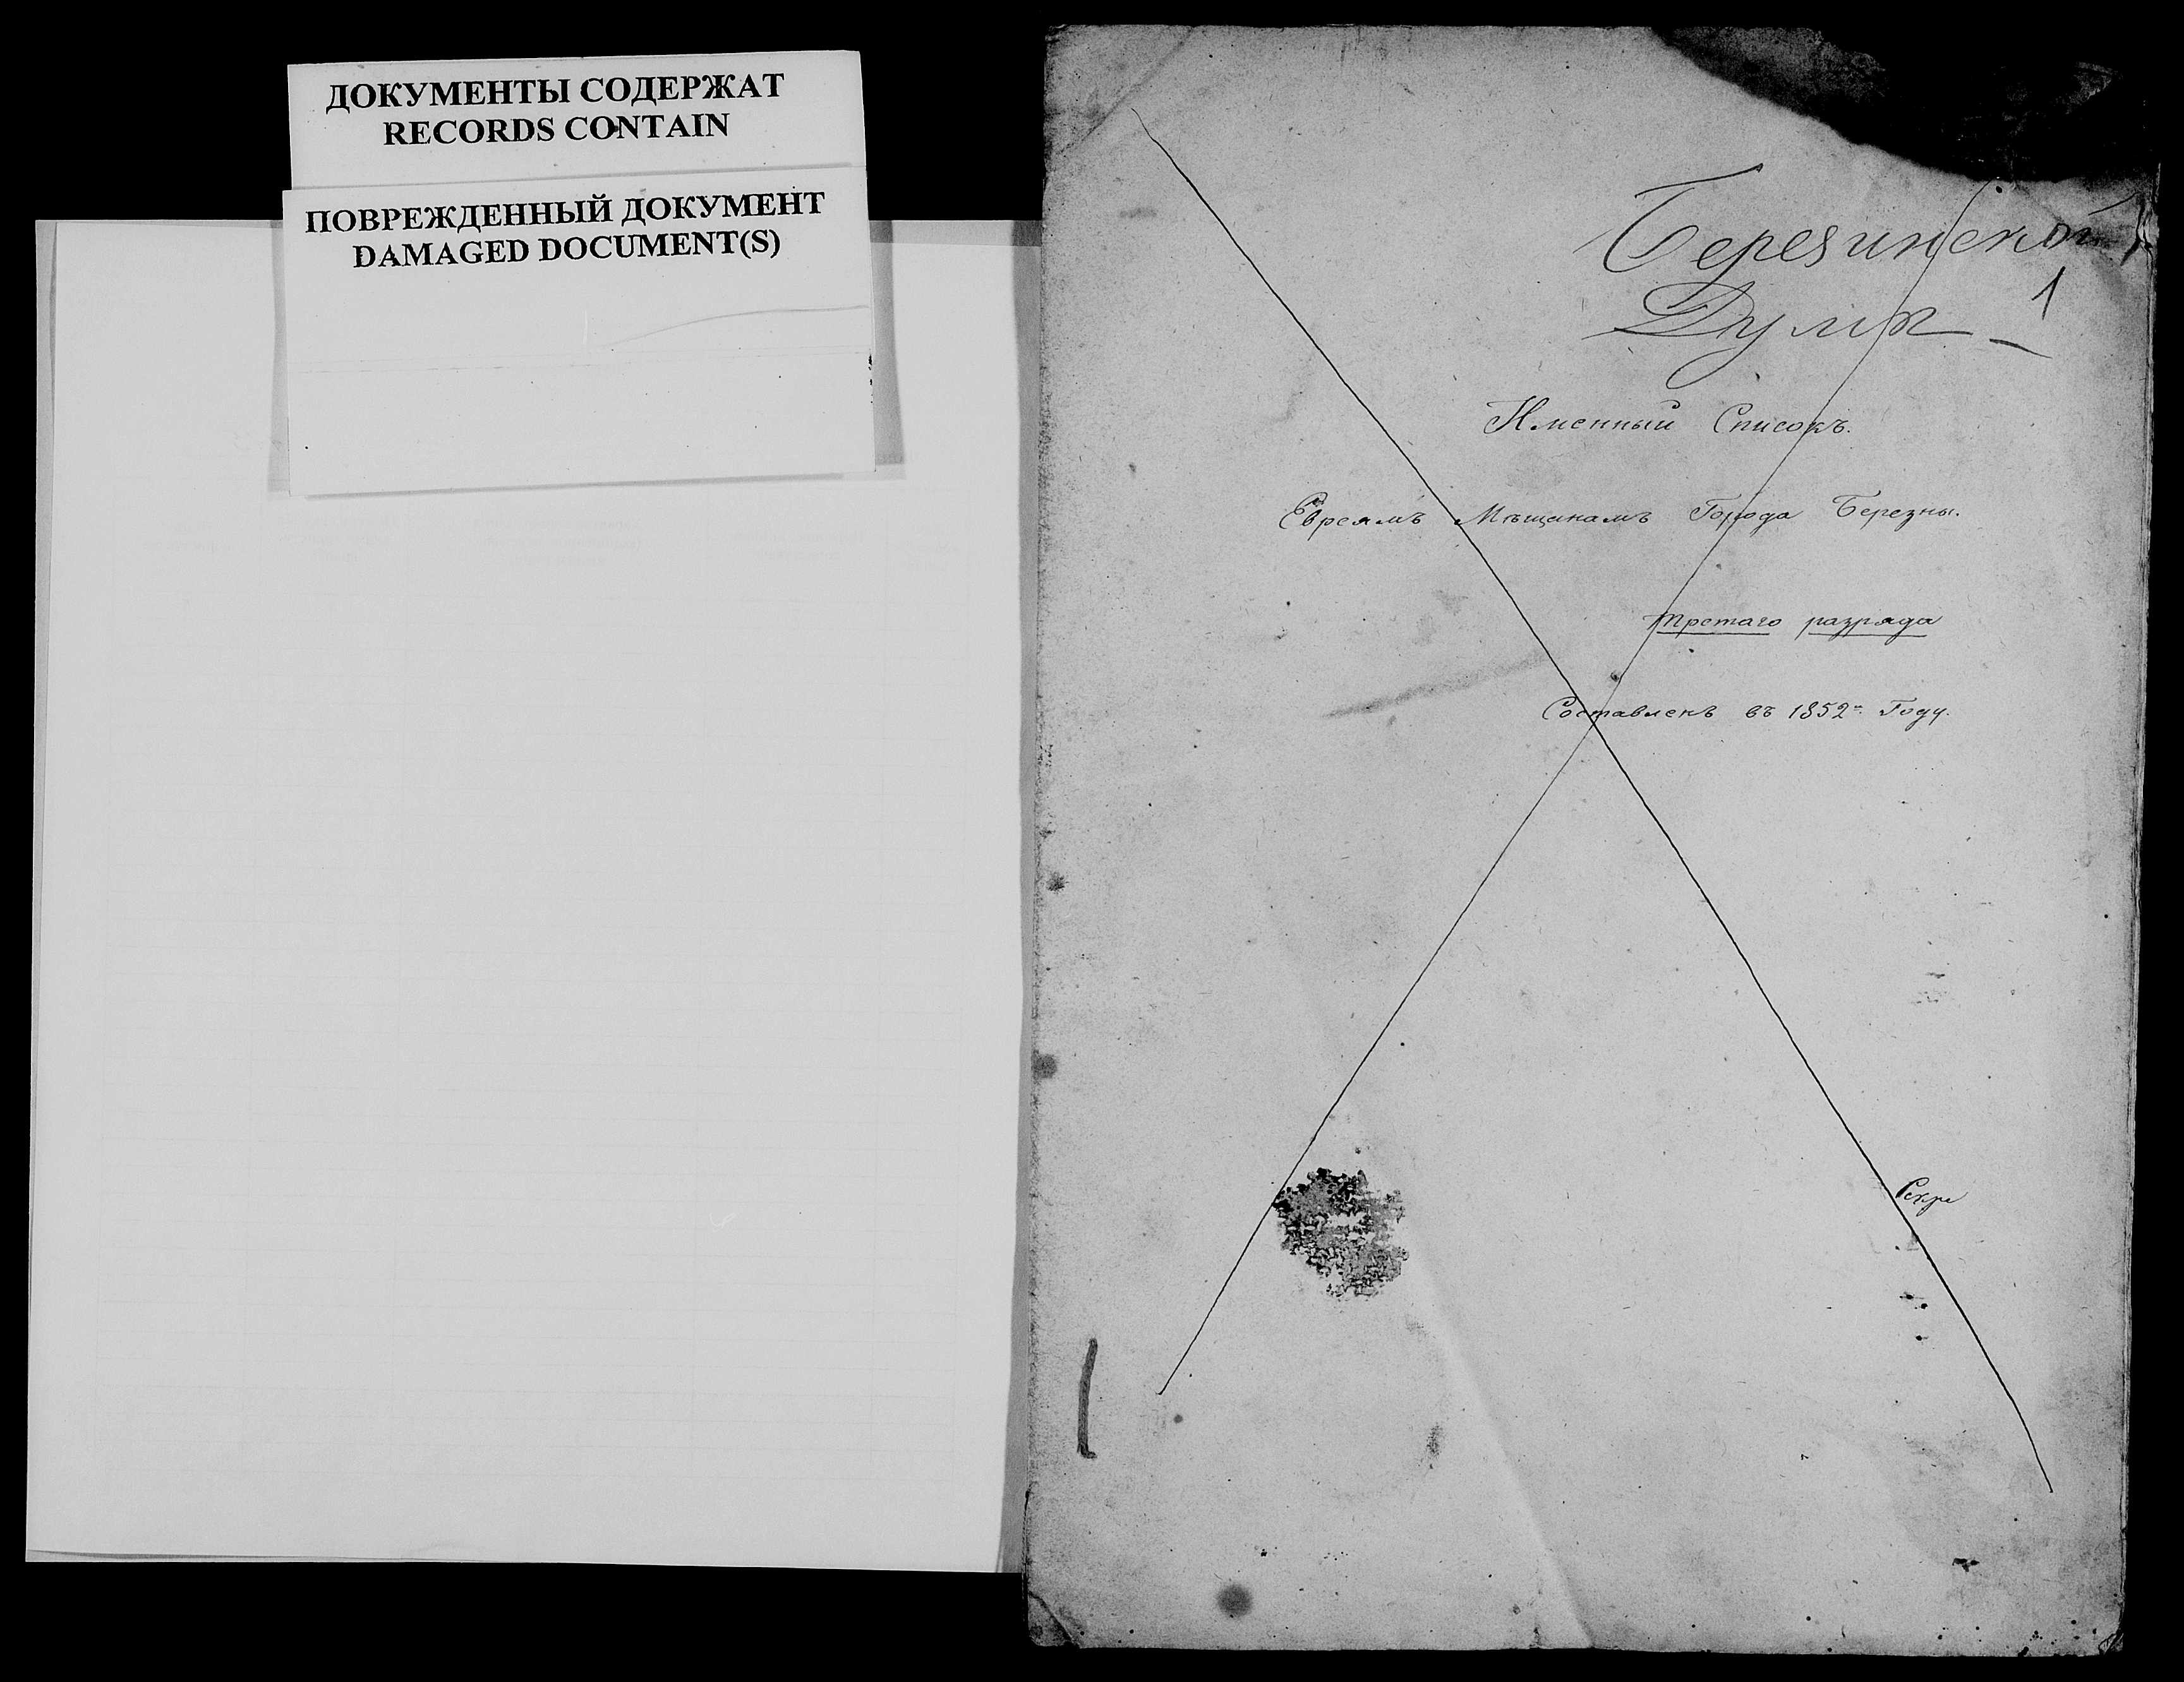 ДОКУМЕНТЫ СОДЕРЖАТ
RECORDS CONTAIN
ПОВРЕЖДЕННЫЙ ДОКУМЕНТ
DAMAGED DOCUMENT(S)
Березинской
1
Думѣ
Именный Списокъ.
Евреямъ Мѣщанамъ Города Березны.
третаго разряда
Составленъ въ 1852м. Году.
Секре